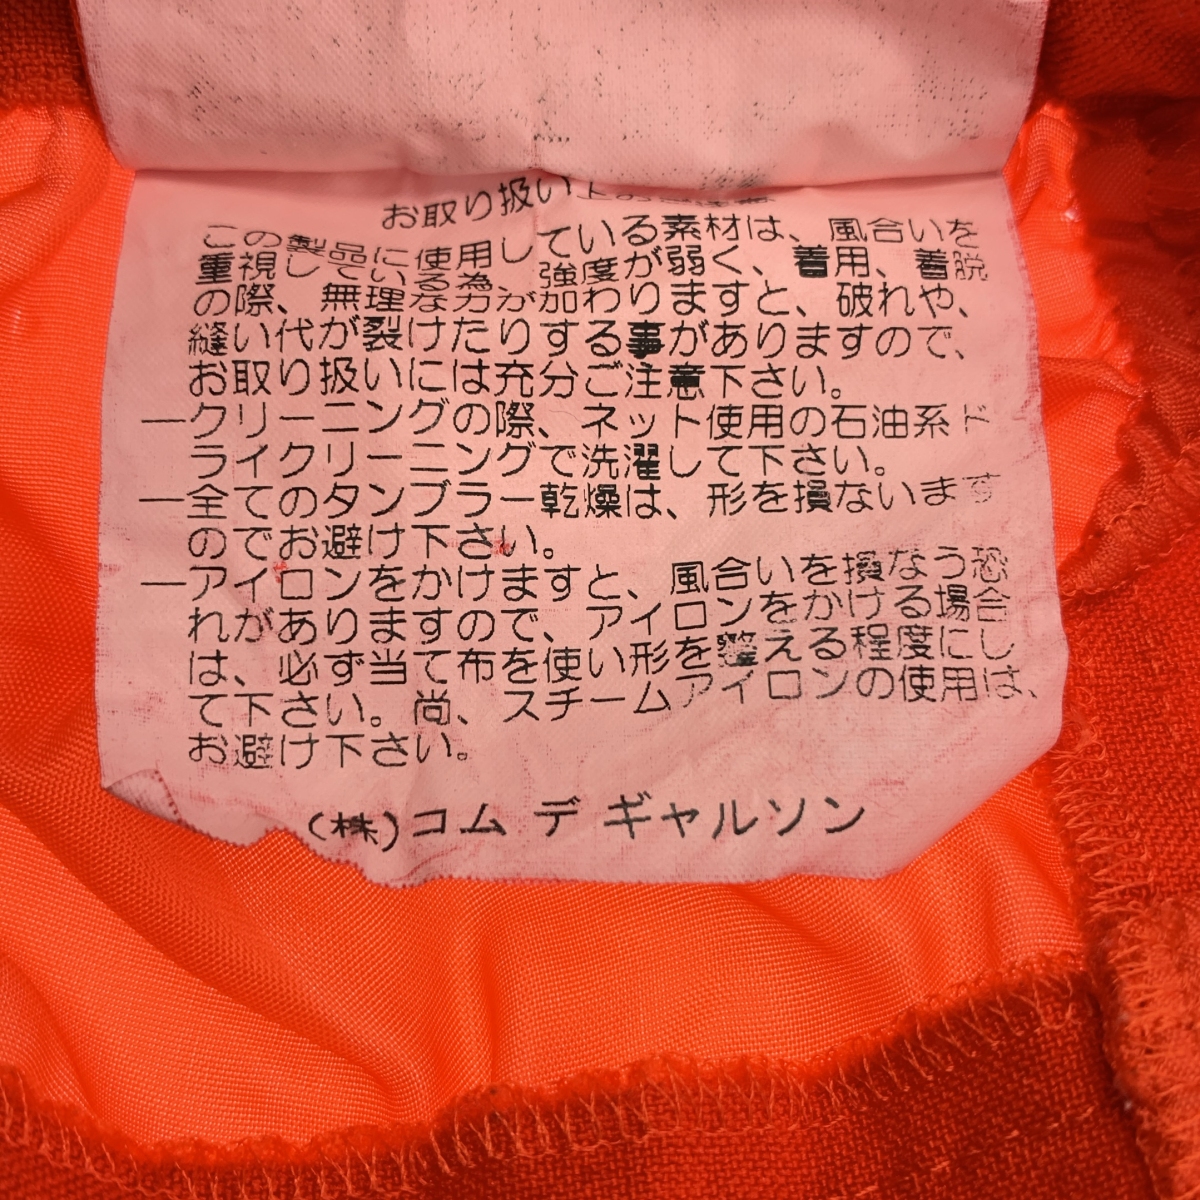 お取り扱い上の
この製品に使用している素材は、風合いを
重視している為、強度が弱く、着用、着脱
の際、無理な力が加わりますと、破れや、
縫い代が裂けたりする事がありますので、
お取り扱いには充分ご注意下さい。
―クリーニングの際、ネット使用の石油系ド
ライクリーニングで洗濯して下さい。
―全てのタンブラー乾燥は、形を損ないます
のでお避け下さい。
―アイロンをかけますと、風合いを損なう恐
れがありますので、アイロンをかける場合
は、必ず当て布を使い形を整える程度にし
て下さい。尚、スチームアイロンの使用は、
お避け下さい。
(株)コム デ ギャルソン